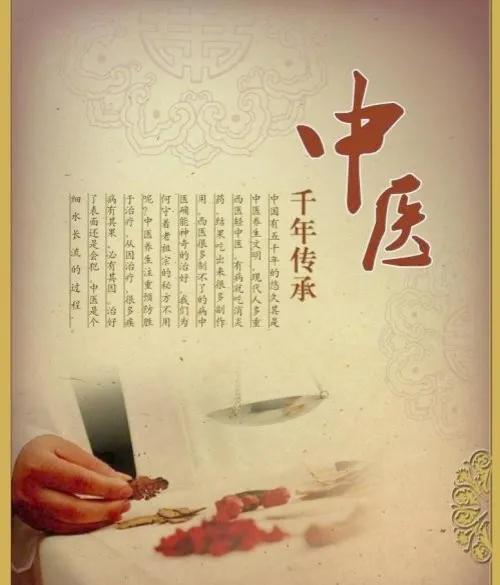 中医
千年传承
中国有五千年的悠久其是
中医养生文明，现代人多重
西医轻中医，有病就吃消炎
药，结果吃出来很多副作
用。西医很多制不了的病中
医确能神奇的治好，我们为
何守着老祖宗的秘方不用
呢？中医养生注重预防胜
于治疗，从因治疗，很多疾
病有其果，必有其因。治好
了表面还是会犯，中医是个
细水长流的过程。